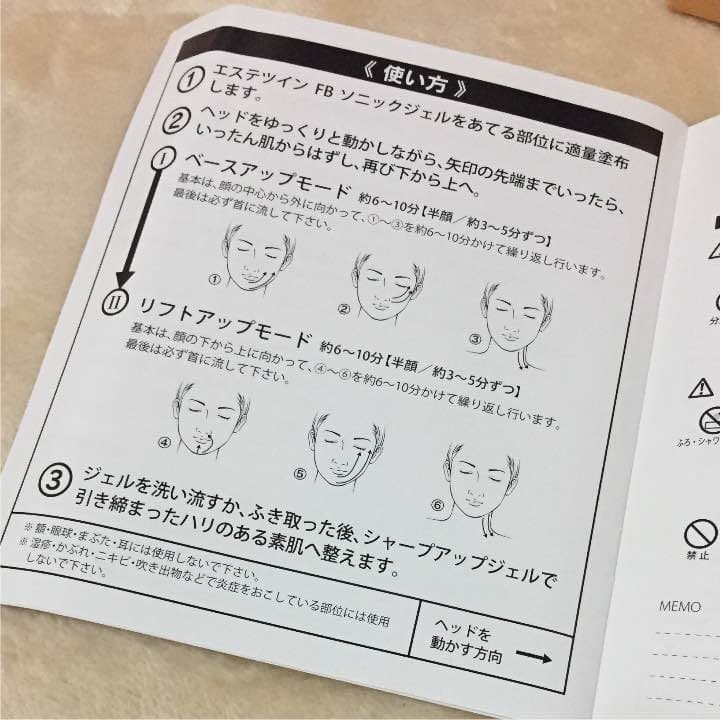 《 使い方 》
① エステツイン FB ソニックジェルをあてる部位に適量塗布
します。
② ヘッドをゆっくりと動かしながら、矢印の先端までいったら、
いったん肌からはずし、再び下から上へ。
Ⅰ ベースアップモード 約6〜10分【半顔／約3〜5分ずつ】
基本は、顔の中心から外に向かって、①〜③を約6〜10分かけて繰り返し行います。
最後は必ず首に流して下さい。
① ② ③
Ⅱ リフトアップモード 約6〜10分【半顔／約3〜5分ずつ】
基本は、顔の下から上に向かって、④〜⑥を約6〜10分かけて繰り返し行います。
最後は必ず首に流して下さい。
④ ⑤ ⑥
③ ジェルを洗い流すか、ふき取った後、シャープアップジェルで
引き締まったハリのある素肌へ整えます。
※額・眼球・まぶた・耳には使用しないで下さい。
※湿疹・かぶれ・ニキビ・吹き出物などで炎症をおこしている部位には使用
しないで下さい。
ヘッドを
動かす方向
分
ふろ・シャワ
禁止
MEMO